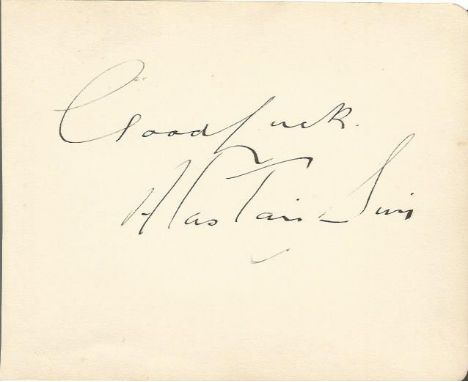 Good Luck.
Alastair Sim